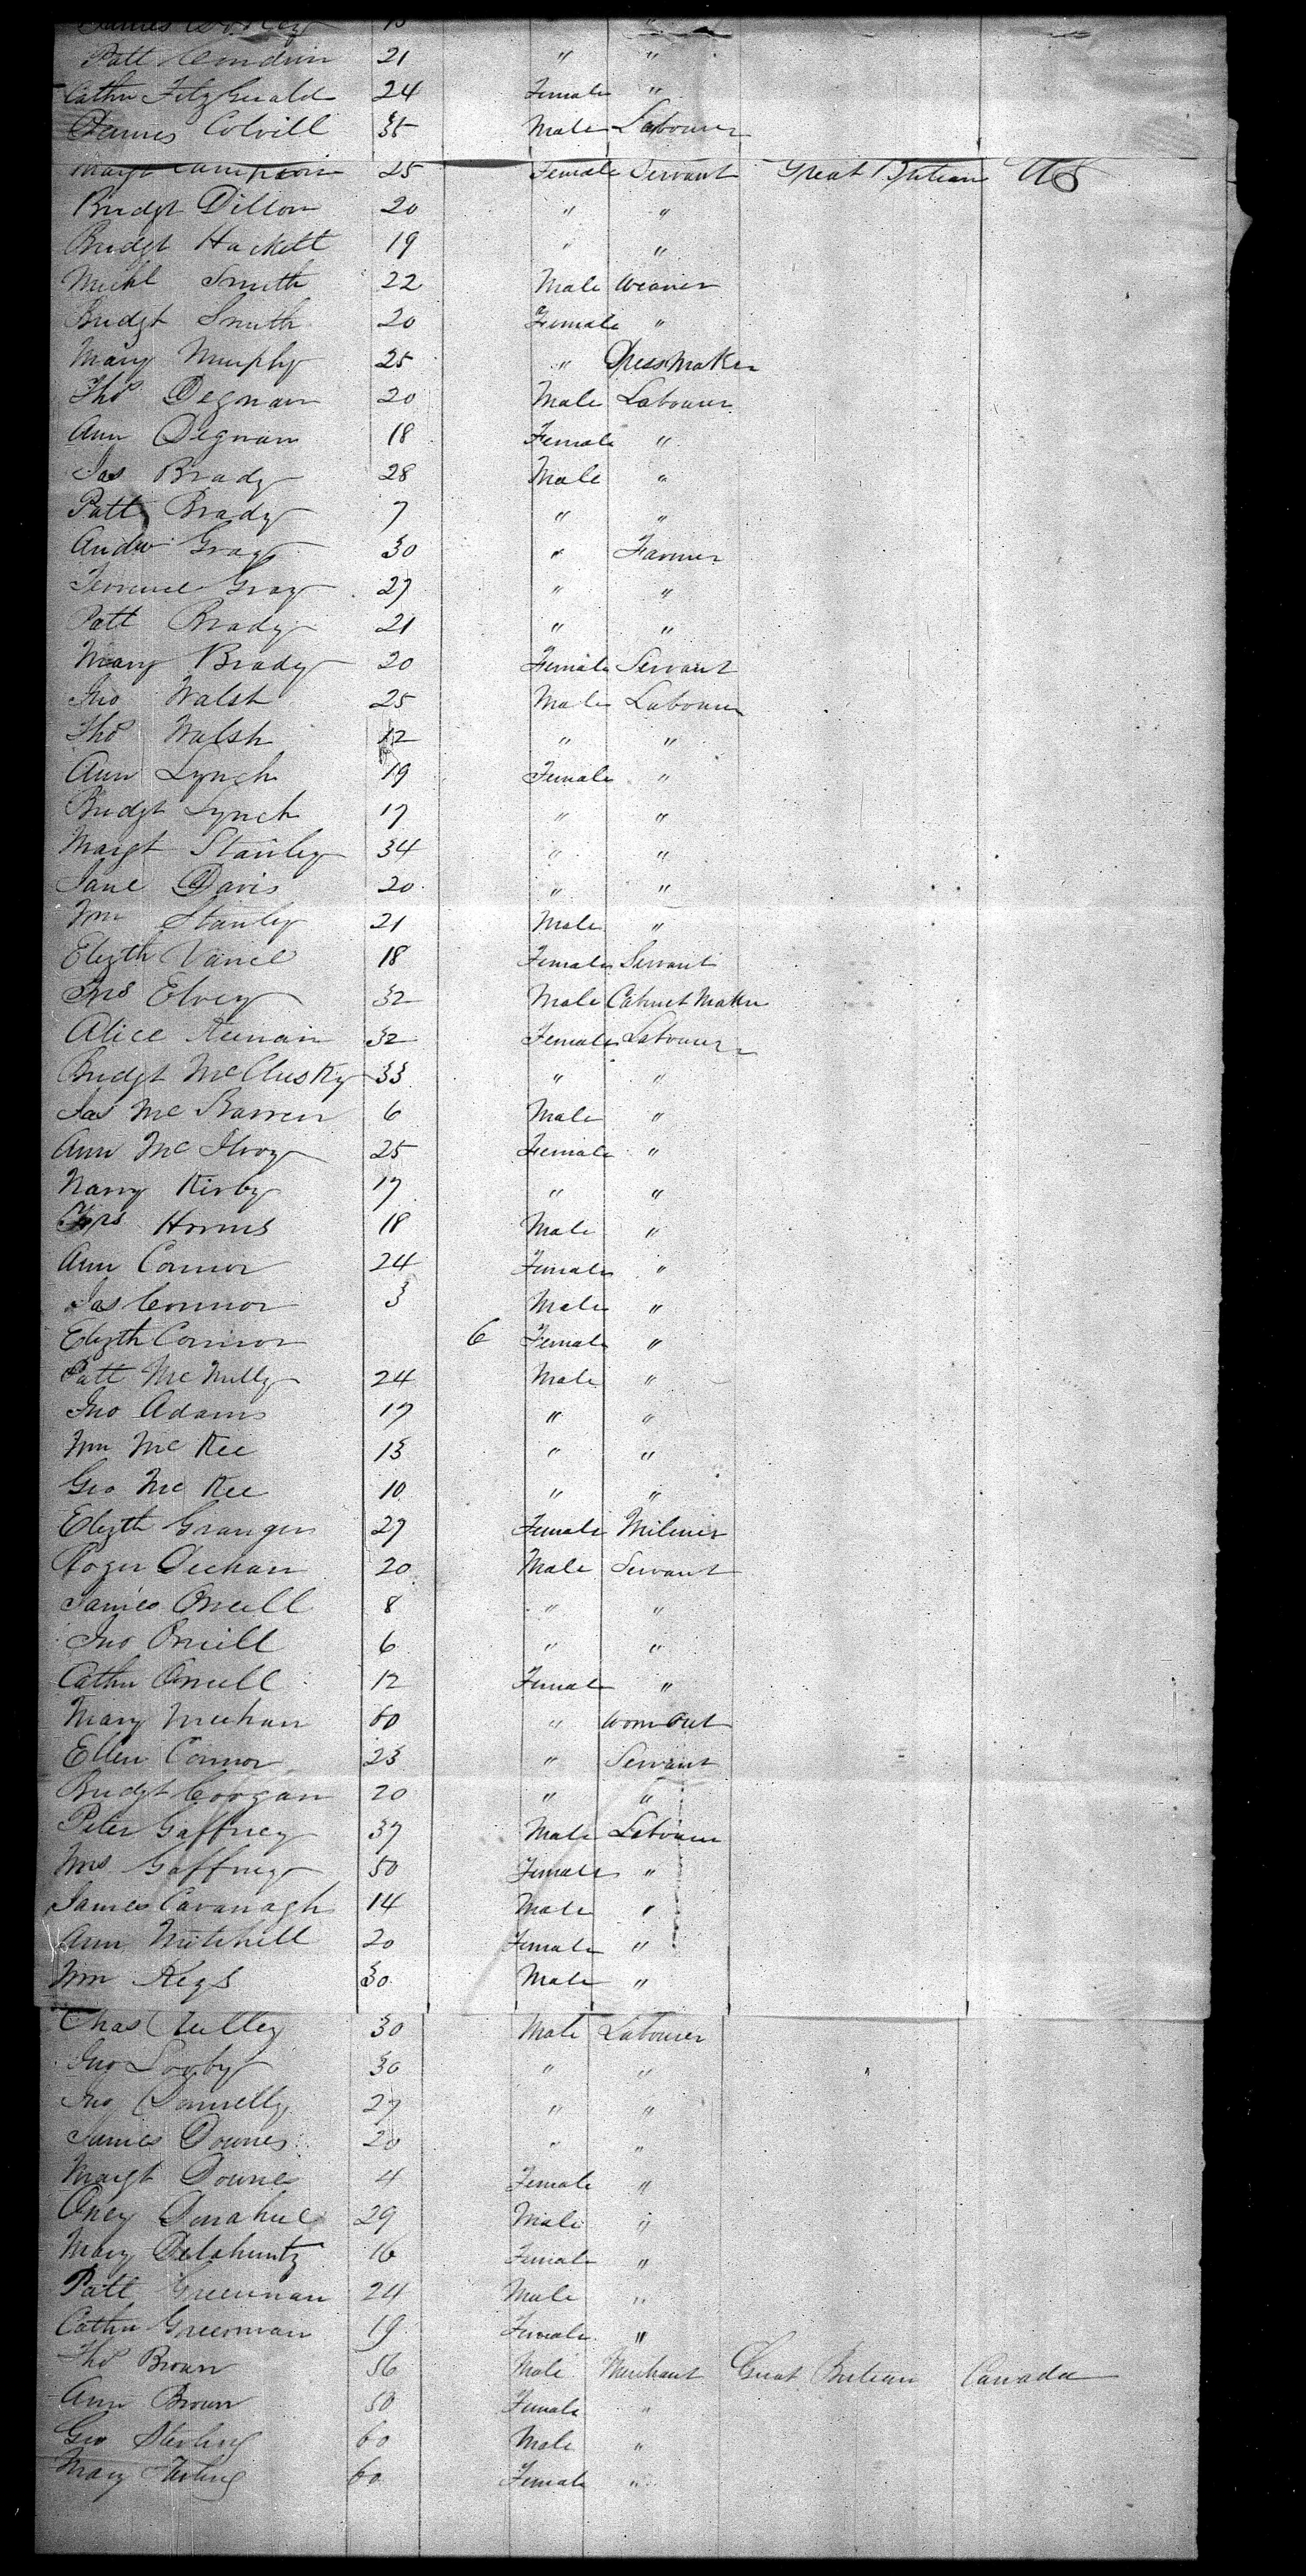 James
Patt Condrin 21 " "
Cathn FitzGerald 24 Female "
James Colvill 35 Male Labourer
Margt Campion 25 Female Servant Great Britian US
Bridgt Dillon 20 " "
Bridgt Hackett 19 " "
Michl Smith 22 Male Weaver
Bridgt Smith 20 Female "
Mary Murphy 25 " Dress Maker
Thos Degnan 20 Male Labourer
Ann Degnan 18 Female "
Jas Brady 28 Male "
Patt Brady 7 " "
Andw Gray 30 " Farmer
Terrence Gray 27 " "
Patt Brady 21 " "
Mary Brady 20 Female Servant
Jno Walsh 25 Male Labourer
Thos Walsh 12 " "
Ann Lynch 19 Female "
Bridgt Lynch 17 " "
Margt Stanley 34 " "
Jane Davis 20 " "
Wm Stanley 21 Male "
Elizth 18 Female Servant
Elvey 32 Male Cabinet Maker
Alice Keenan 32 Female Labourer
Bridgt McClusky 33 " "
Jas McBarren 6 Male "
Ann McIlroy 25 Female "
Nancy Kirby 17 " "
Horms 18 Male "
Ann Connor 24 Female "
Jas Connor 3 Male "
Elizth Connor 6 Female "
Patt McNully 24 Male "
Jno Adams 17 " "
Wm McKee 13 " "
Geo McKee 10 " "
Elizth Granger 27 Female Miliner
Roger Deehan 20 Male Servant
James Oneill 8 " "
Jno Oneill 6 " "
Cathn Oneill 12 Female "
Mary Meehan 60 " Worn Out
Ellen Connor 23 " Servant
Bridgt Coogan 20 " "
Peter Gaffney 37 Male Labourer
Mrs Gaffney 50 Female "
James Cavanagh 14 Male "
Ann Mitchill 20 Female "
Wm Keys 30 Male "
Chas 30 Male Labourer
Jno Looby 30 " "
Jno Donnelly 27 " "
James Downes 20 " "
Margt Downes 4 Female "
Oney Donahue 29 Male "
Mary Delahunty 16 Female "
Patt Greenan 24 Male "
Cathn Greenan 19 Female "
Thos Brown 56 Male Merchant Great Britian Canada
Ann Brown 50 Female "
Geo Sterling 60 Male "
Mary Sterling 60 Female "